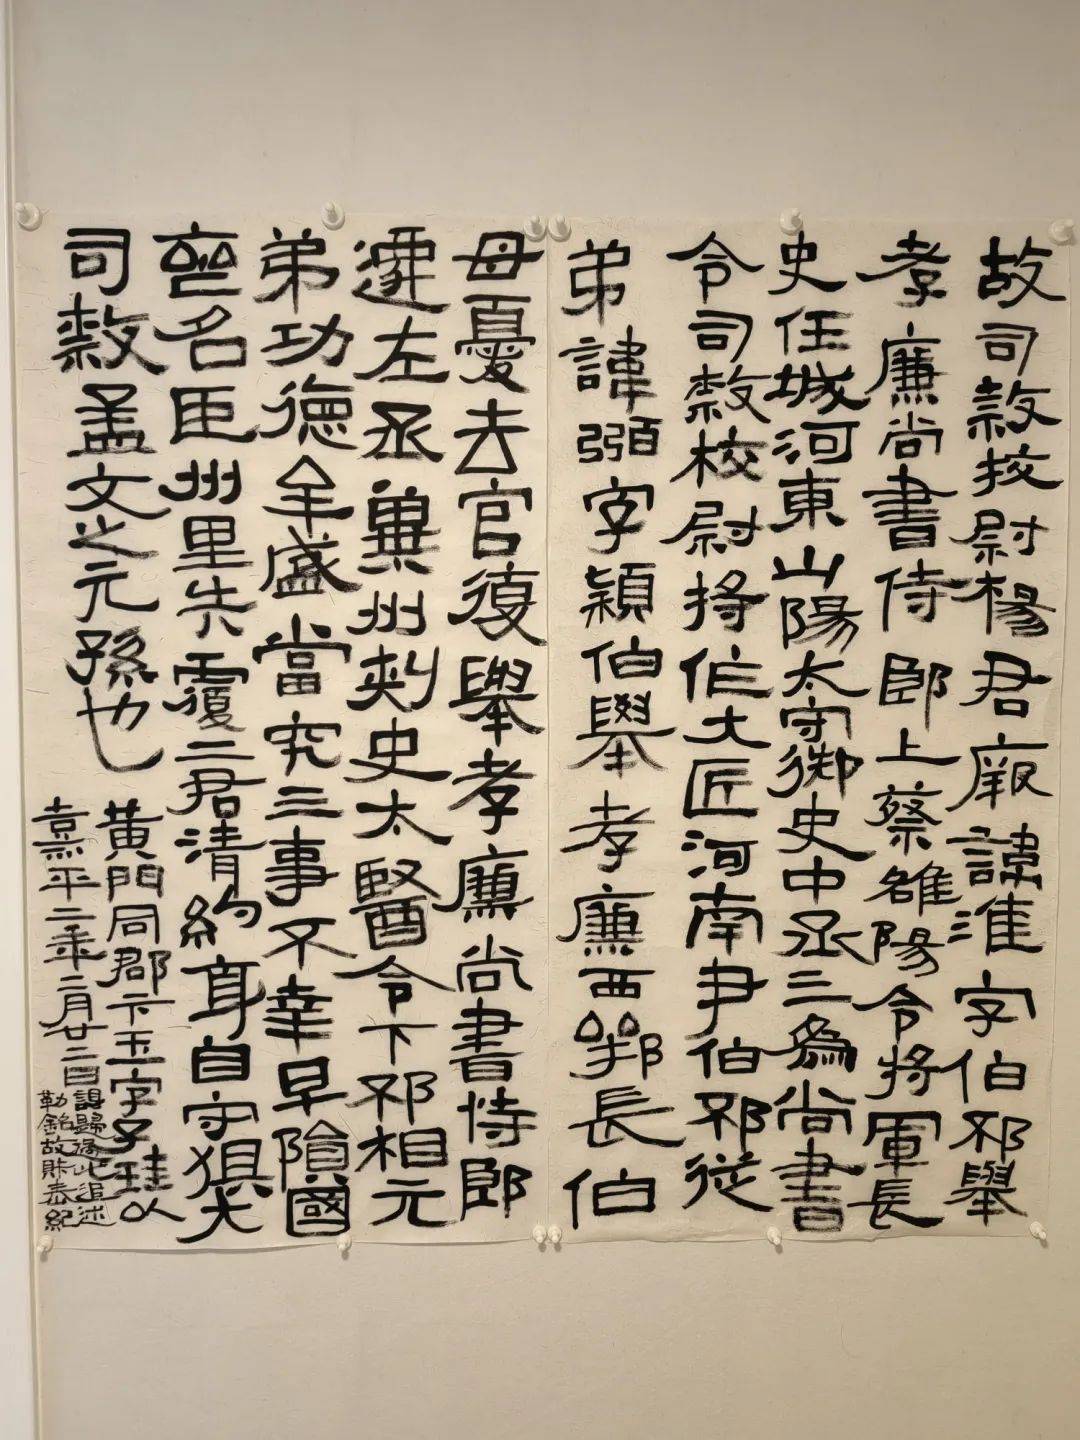 故司隸校尉楊君厥諱淮字伯邳舉
孝廉尚書侍郎上蔡雒陽令將軍長
史任城河東山陽太守御史中丞三為尚書
令司隸校尉將作大匠河南尹伯邳從
弟諱弼字穎伯舉孝廉西鄂長伯
母憂去官復舉孝廉尚書侍郎
遷左丞冀州刺史太醫令下邳相元
弟功德牟盛當究三事不幸早隕國
喪名臣州里失覆二君清約身自守俱大
司隸孟文之元孫也
黃門同郡卞玉字子珪以
熹平二年二月廿二日
謁歸過此追述
勒銘故財表紀